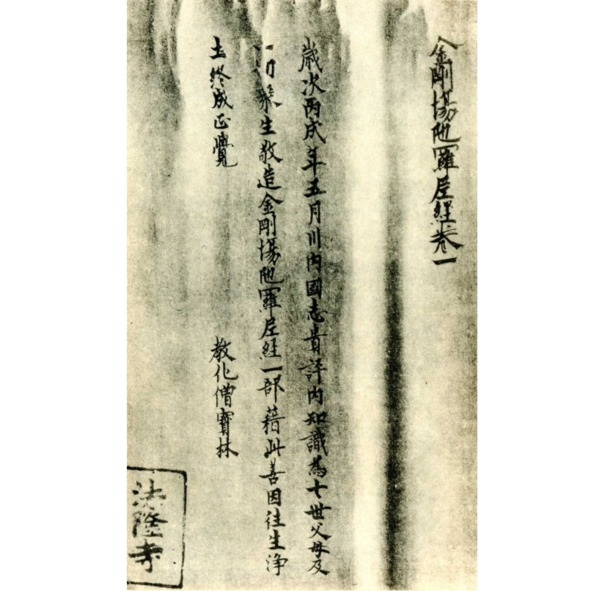 金剛場陁羅尼經卷一
歳次丙戌年五月川内國志貴評内知識為七世父母及
一切衆生敬造金剛場陁羅尼経一部藉此善因往生浄
土終成正覺
教化僧寶林
法隆寺